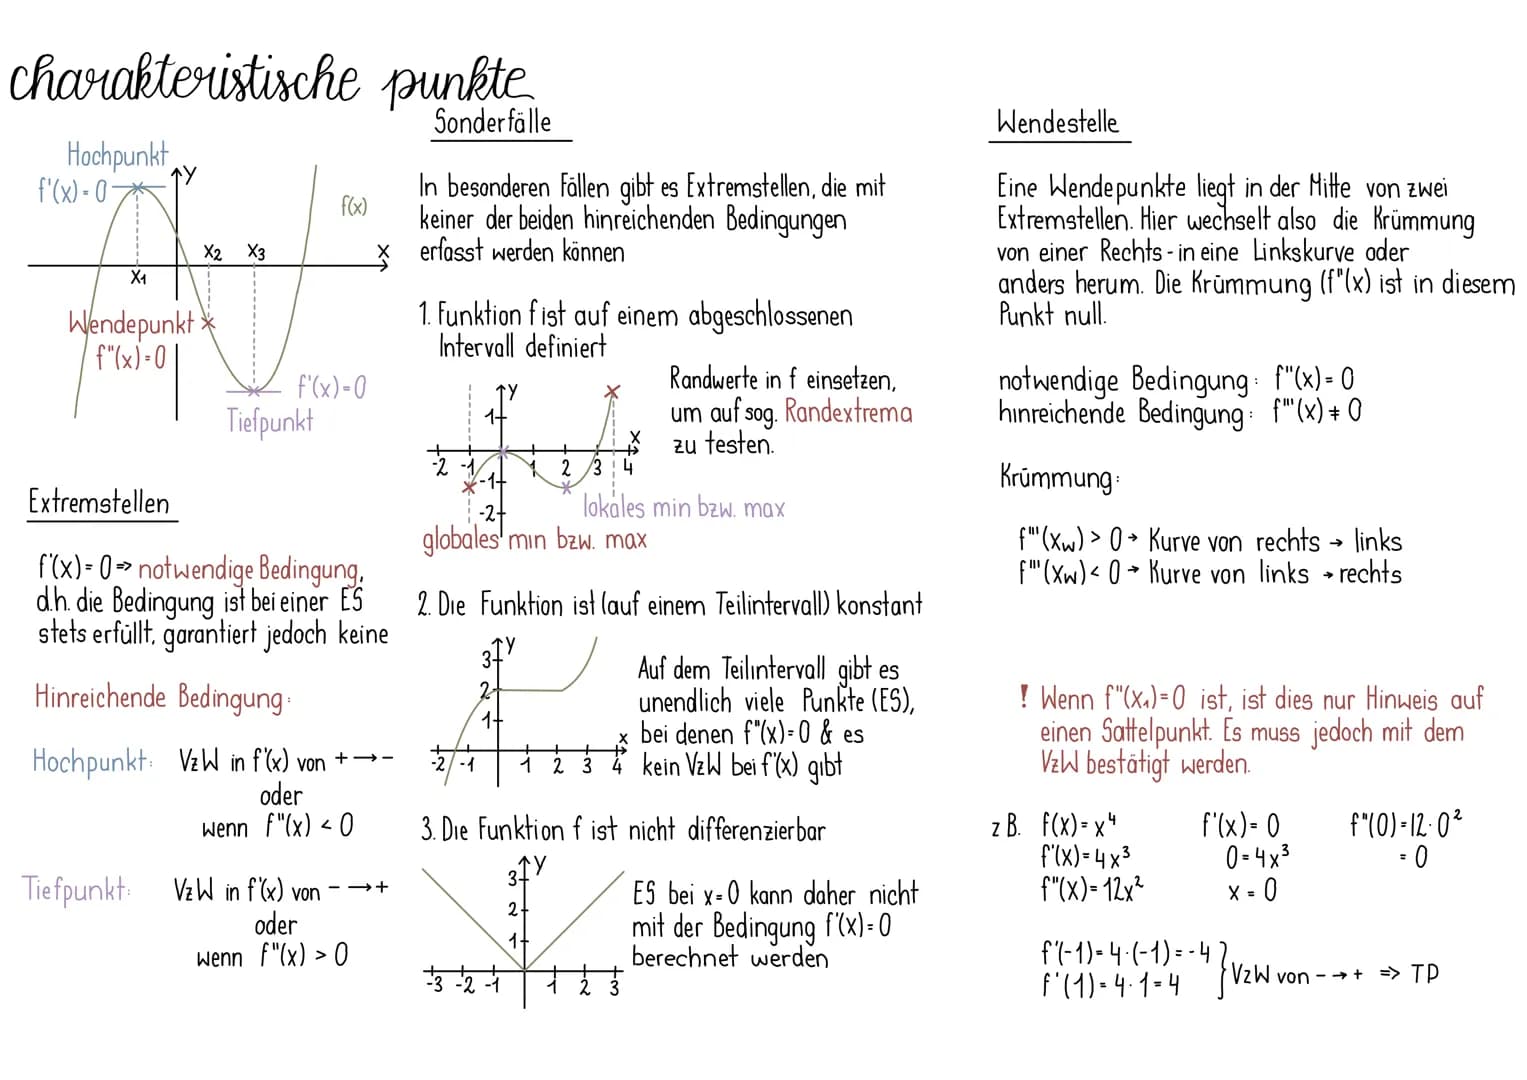 charakteristische punkte
Hochpunkt
f'(x)=0
y
f(x)
x
x₁
x₂ x₃
Wendepunkt
f"(x)=0
f'(x)=0
Tiefpunkt
Extremstellen
f'(x)=0⇒ notwendige Bedingung,
d.h. die Bedingung ist bei einer ES
stets erfüllt, garantiert jedoch keine
Hinreichende Bedingung:
Hochpunkt: VzW in f'(x) von +→-
oder
wenn f"(x) < 0
Tiefpunkt: VzW in f'(x) von -→+
oder
wenn f"(x) > 0
Sonderfälle
In besonderen Fällen gibt es Extremstellen, die mit
keiner der beiden hinreichenden Bedingungen
erfasst werden können
1. Funktion f ist auf einem abgeschlossenen
Intervall definiert
y
1
x
-2 -1 1 2 3 4
-1
-2
Randwerte in f einsetzen,
um auf sog. Randextrema
zu testen.
lokales min bzw. max
globales min bzw. max
2. Die Funktion ist (auf einem Teilintervall) konstant
y
3
2
1
x
-2 -1 1 2 3 4
Auf dem Teilintervall gibt es
unendlich viele Punkte (ES),
bei denen f"(x)=0 & es
kein VzW bei f'(x) gibt
3. Die Funktion f ist nicht differenzierbar
y
3
2
1
-3 -2 -1 1 2 3
ES bei x=0 kann daher nicht
mit der Bedingung f'(x)=0
berechnet werden
Wendestelle
Eine Wendepunkte liegt in der Mitte von zwei
Extremstellen. Hier wechselt also die Krümmung
von einer Rechts-in eine Linkskurve oder
anders herum. Die Krümmung (f"(x) ist in diesem
Punkt null.
notwendige Bedingung: f"(x)= 0
hinreichende Bedingung: f"'(x) ≠ 0
Krümmung:
f"'(xw) > 0 → Kurve von rechts → links
f"'(xw) < 0 → Kurve von links → rechts
! Wenn f"(x₁)=0 ist, ist dies nur Hinweis auf
einen Sattelpunkt. Es muss jedoch mit dem
VzW bestätigt werden.
z B. f(x)=x⁴ f'(x)= 0 f"(0)=12·0²
f'(x)=4x³ 0=4x³ = 0
f"(x)=12x² x = 0
f'(-1)=4·(-1)=-4
f'(1)=4·1=4 } VzW von -→+ ⇒ TP